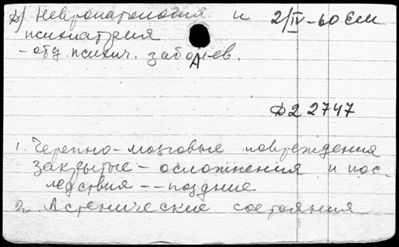 Д) Невропатология и 2/IV-60 Ем
психиатрия
- отд. психич. заболев.
Д22747
1. Черепно-мозговые повреждения
закрытые - осложнения и пос-
ледствия -- поздние
2. Астенические состояния